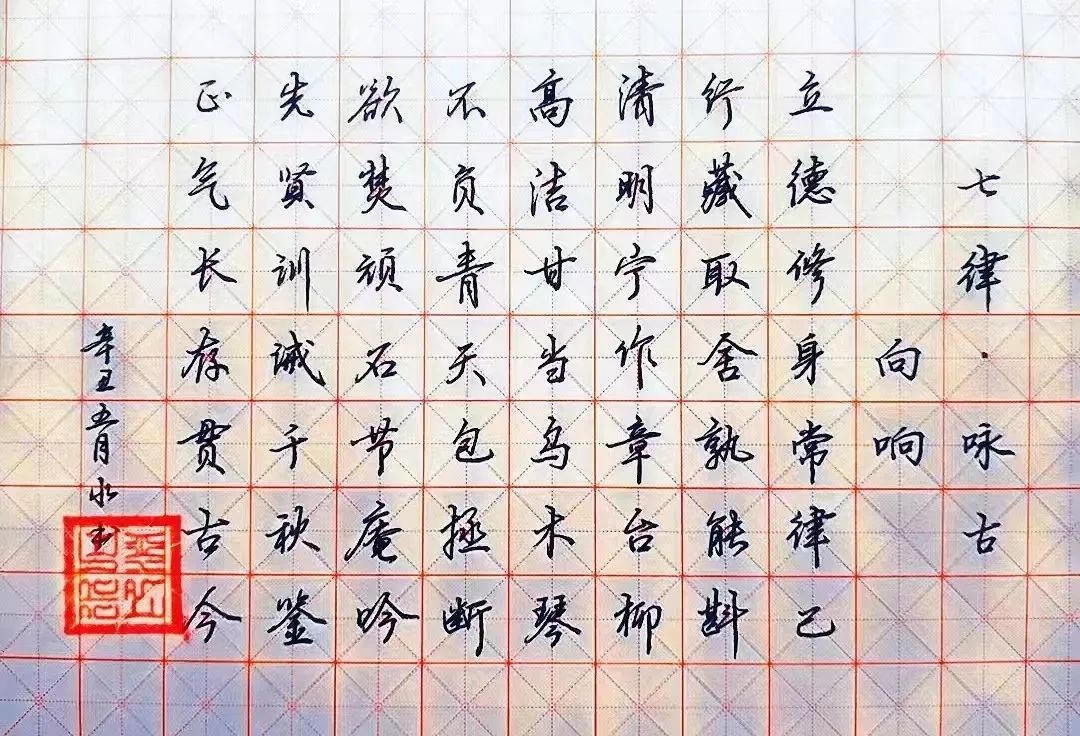 七律·咏古
向响
立德修身常律己
行藏取舍孰能斟
清明宁作章台柳
高洁甘当乌木琴
不负青天包拯断
欲焚顽石节庵吟
先贤训诫千秋鉴
正气长存贯古今
辛丑五月水书